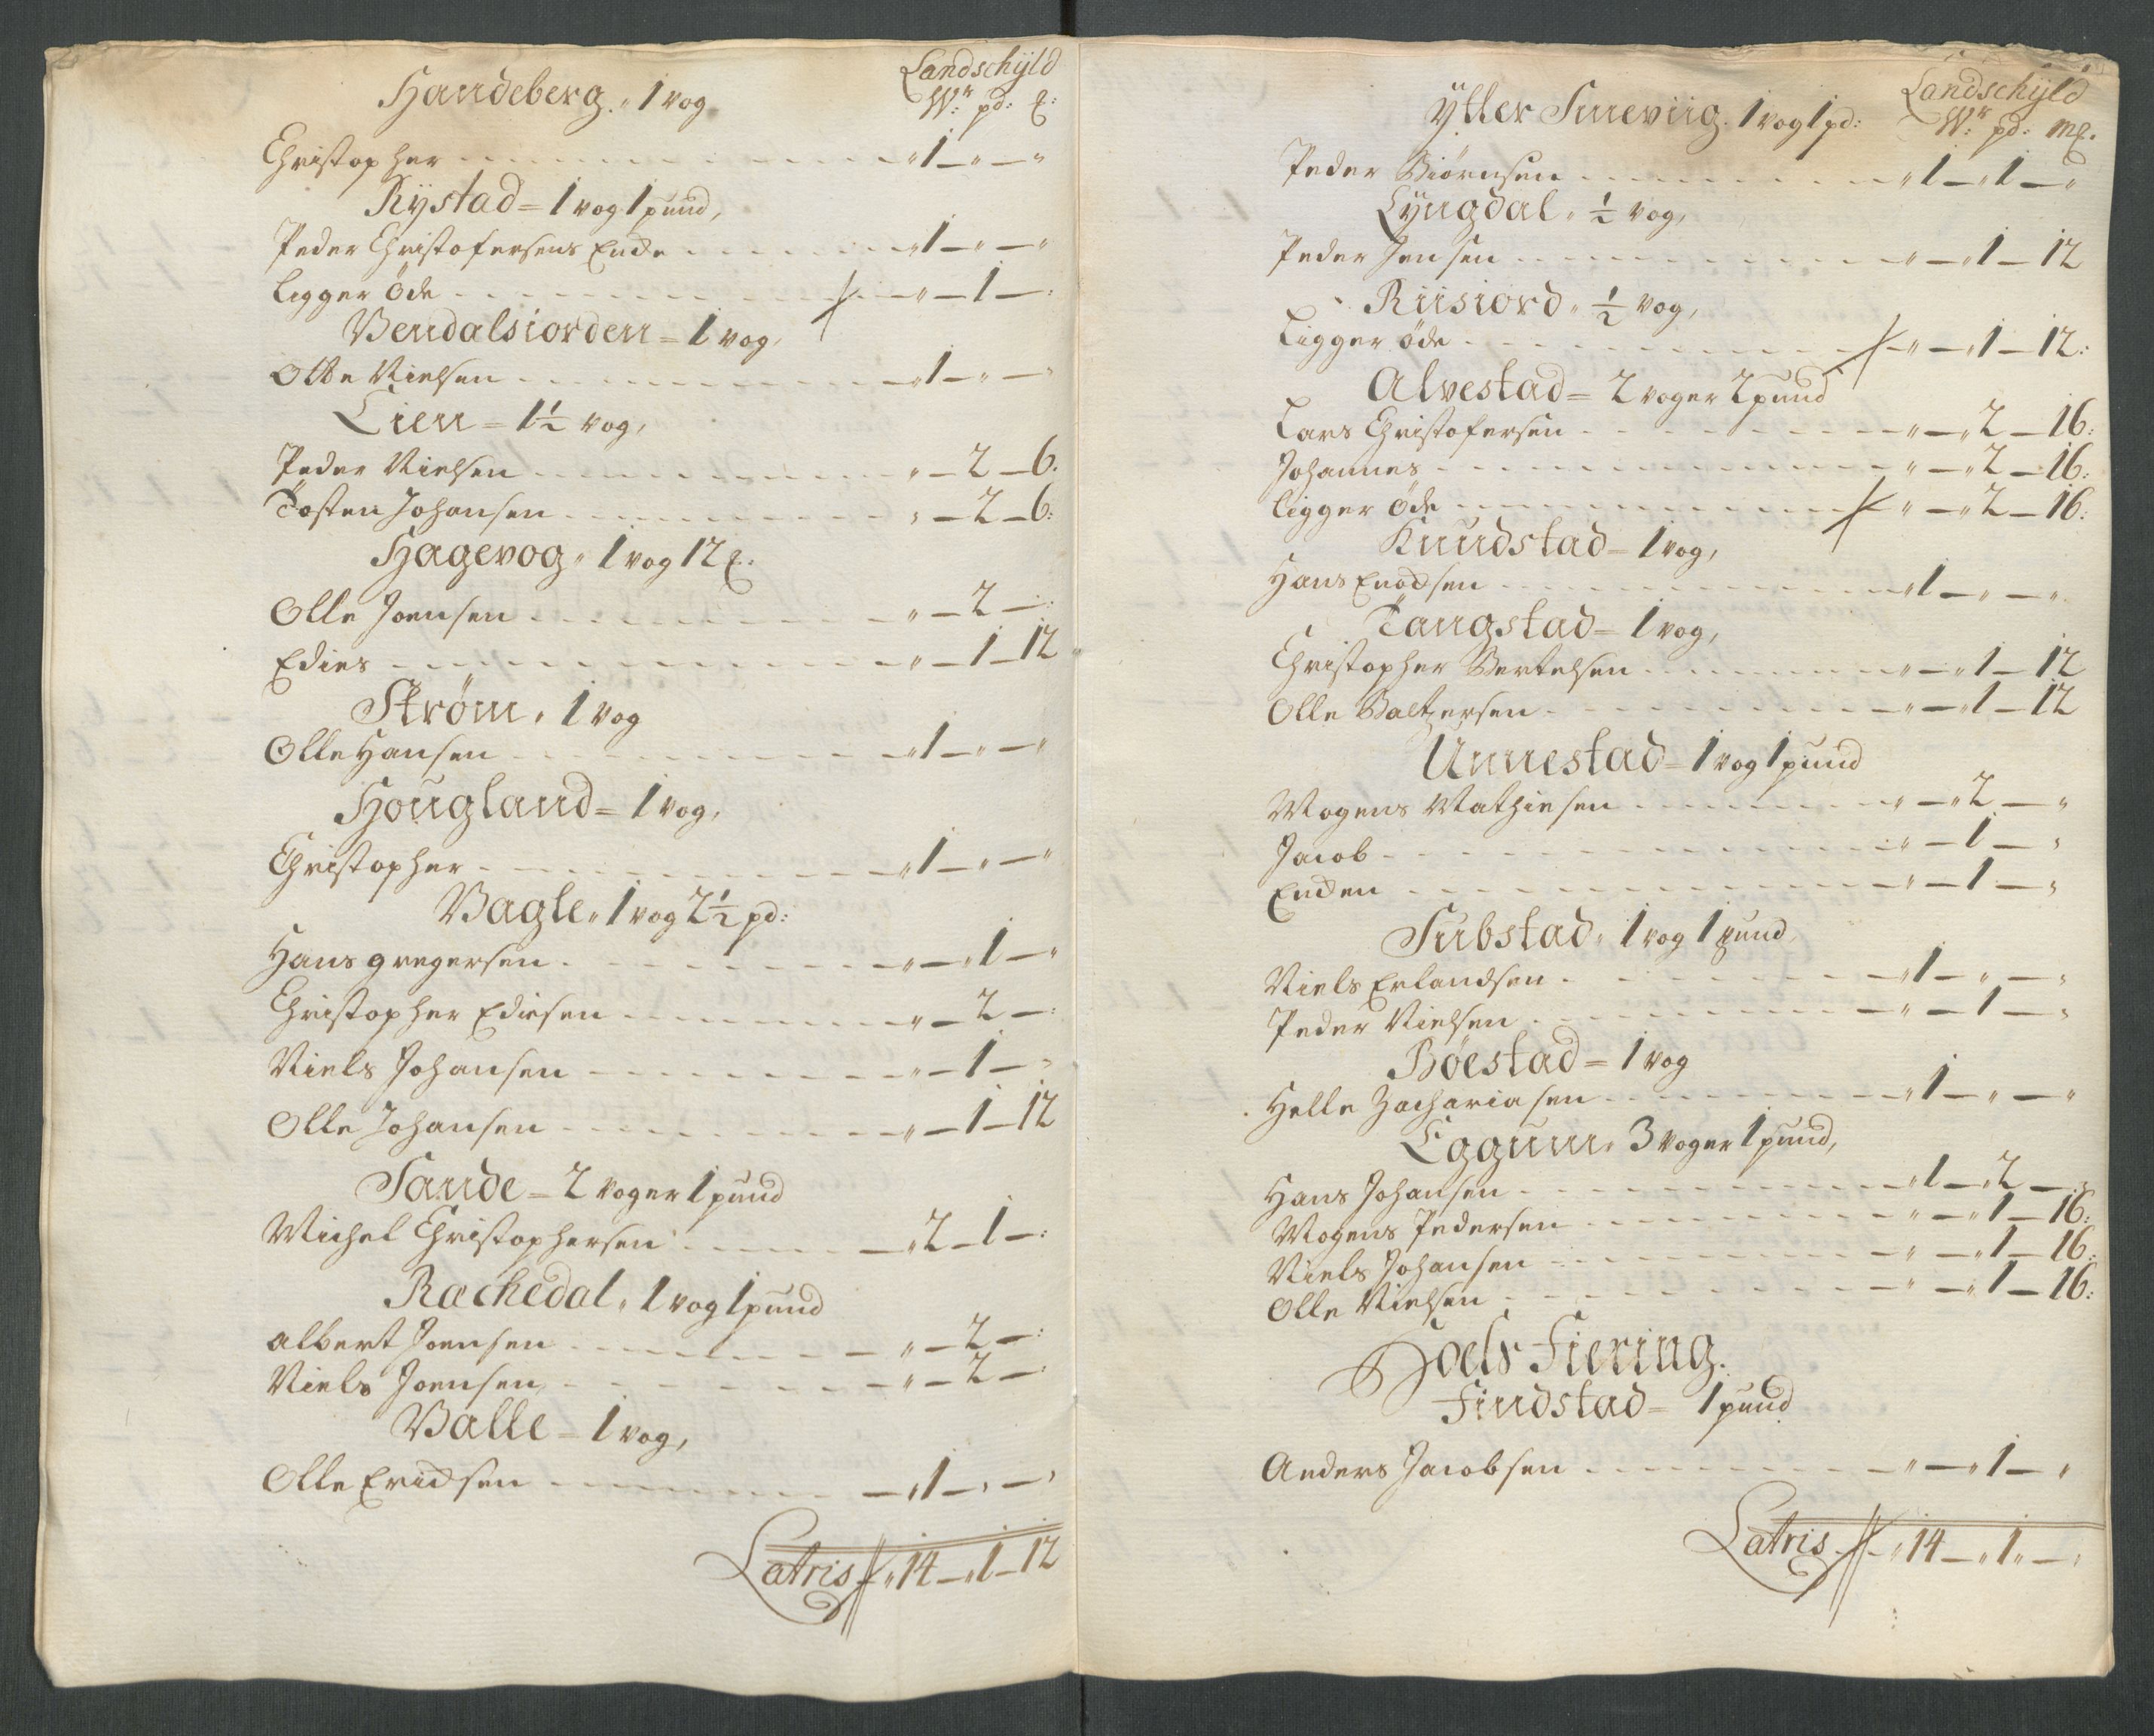 Landschÿld
Handeberg. 1 vog
W: pd: ℔:
Christopher - - - „1 — „ — „
Rystad = 1 vog 1 pund,
Peder Christofersens Encke - - - „1 — „ — „
ligger öde - - - „ — 1 — :
Vendalsiorden = 1 vog,
Otte Nielsen - - - „1 — „ — „
Lien = 1½ vog,
Peder Nielsen - - - „ — 2 — 6.
Tosten Johansen - - - „ — 2 — 6:
Hagevog „ 1 vog 12 ℔:
Olle Joensen - - - „ — 2 — :
Edies - - - „ — 1 — 12
Strøm „ 1 vog
Olle Hansen - - - „1 — „ — „
Hougland = 1 vog,
Christopher - - - „1 — „ — „
Vagle „ 1 vog 2½ pd:
Hans gregersen - - - „ — „1 — „
Christopher Ediesen - - - „ — 2 — :
Niels Johansen - - - „ — 1 — „
Olle Johansen - - - „ — 1 — 12
Sande = 2 voger 1 pund
Michel Christophersen - - - „2 — 1 — :
Rachedal „ 1 vog 1 pund
albert Joensen - - - „ — 2 — :
Niels Joensen - - - „ — 2 — :
Valle = 1 vog,
Olle Ericksen - - - „1 — „ — „
Latris „14 — „1 — 12
Landschÿld
Ÿtter Sneviig. 1 vog 1 pd:
W: pd: m℔.
Peder Biörnsen - - - „1 — „1 — „
Lyngdal „ ½ vog,
Peder Jensen - - - „ — „1 — 12
Riisiord „ ½ vog,
Ligger öde - - - „ — „1 — 12:
Alvestad = 2 voger 2 pund
Lars Christofersen - - - „ — „2 — 16:
Johannes - - - „ — „2 — 16:
ligger öde - - - „ — „2 — 16:
Knudstad = 1 vog,
Hans Enocksen - - - „1 — „ — „
Tangstad = 1 vog,
Christopher Bertelsen - - - „ — „1 — 12
Olle Baltzersen - - - „ — „1 — 12
Unnestad = 1 vog 1 pund
Mogens Mathiesen - - - „ — „2 — „
Jacob - - - „ — 1 — „
Encken - - - „ — 1 — „
Substad „ 1 vog 1 pund
Niels Erlandsen - - - „1 — „ — „
Peder Nielsen - - - „ — 1 — „
Böestad = 1 vog
Helle Zachariasen - - - „1 — „ — „
Eggum „ 3 voger 1 pund,
Hans Johansen - - - „1 — „2 — „
Mogens Pedersen - - - „ — „1 — 16:
Niels Johansen - - - „ — „1 — 16:
Olle Nielsen - - - „ — „1 — 16:
Hoels Fiering.
Findstad = 1 pund
Anders Jacobsen - - - „ — „1 — „
Latris „14 — „1 „ — „